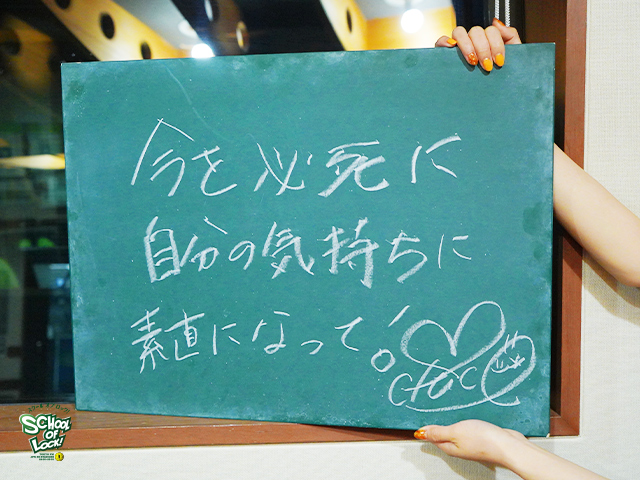 今を必死に
自分の気持ちに
素直になって!
SCHOOL
OF
LOCK!